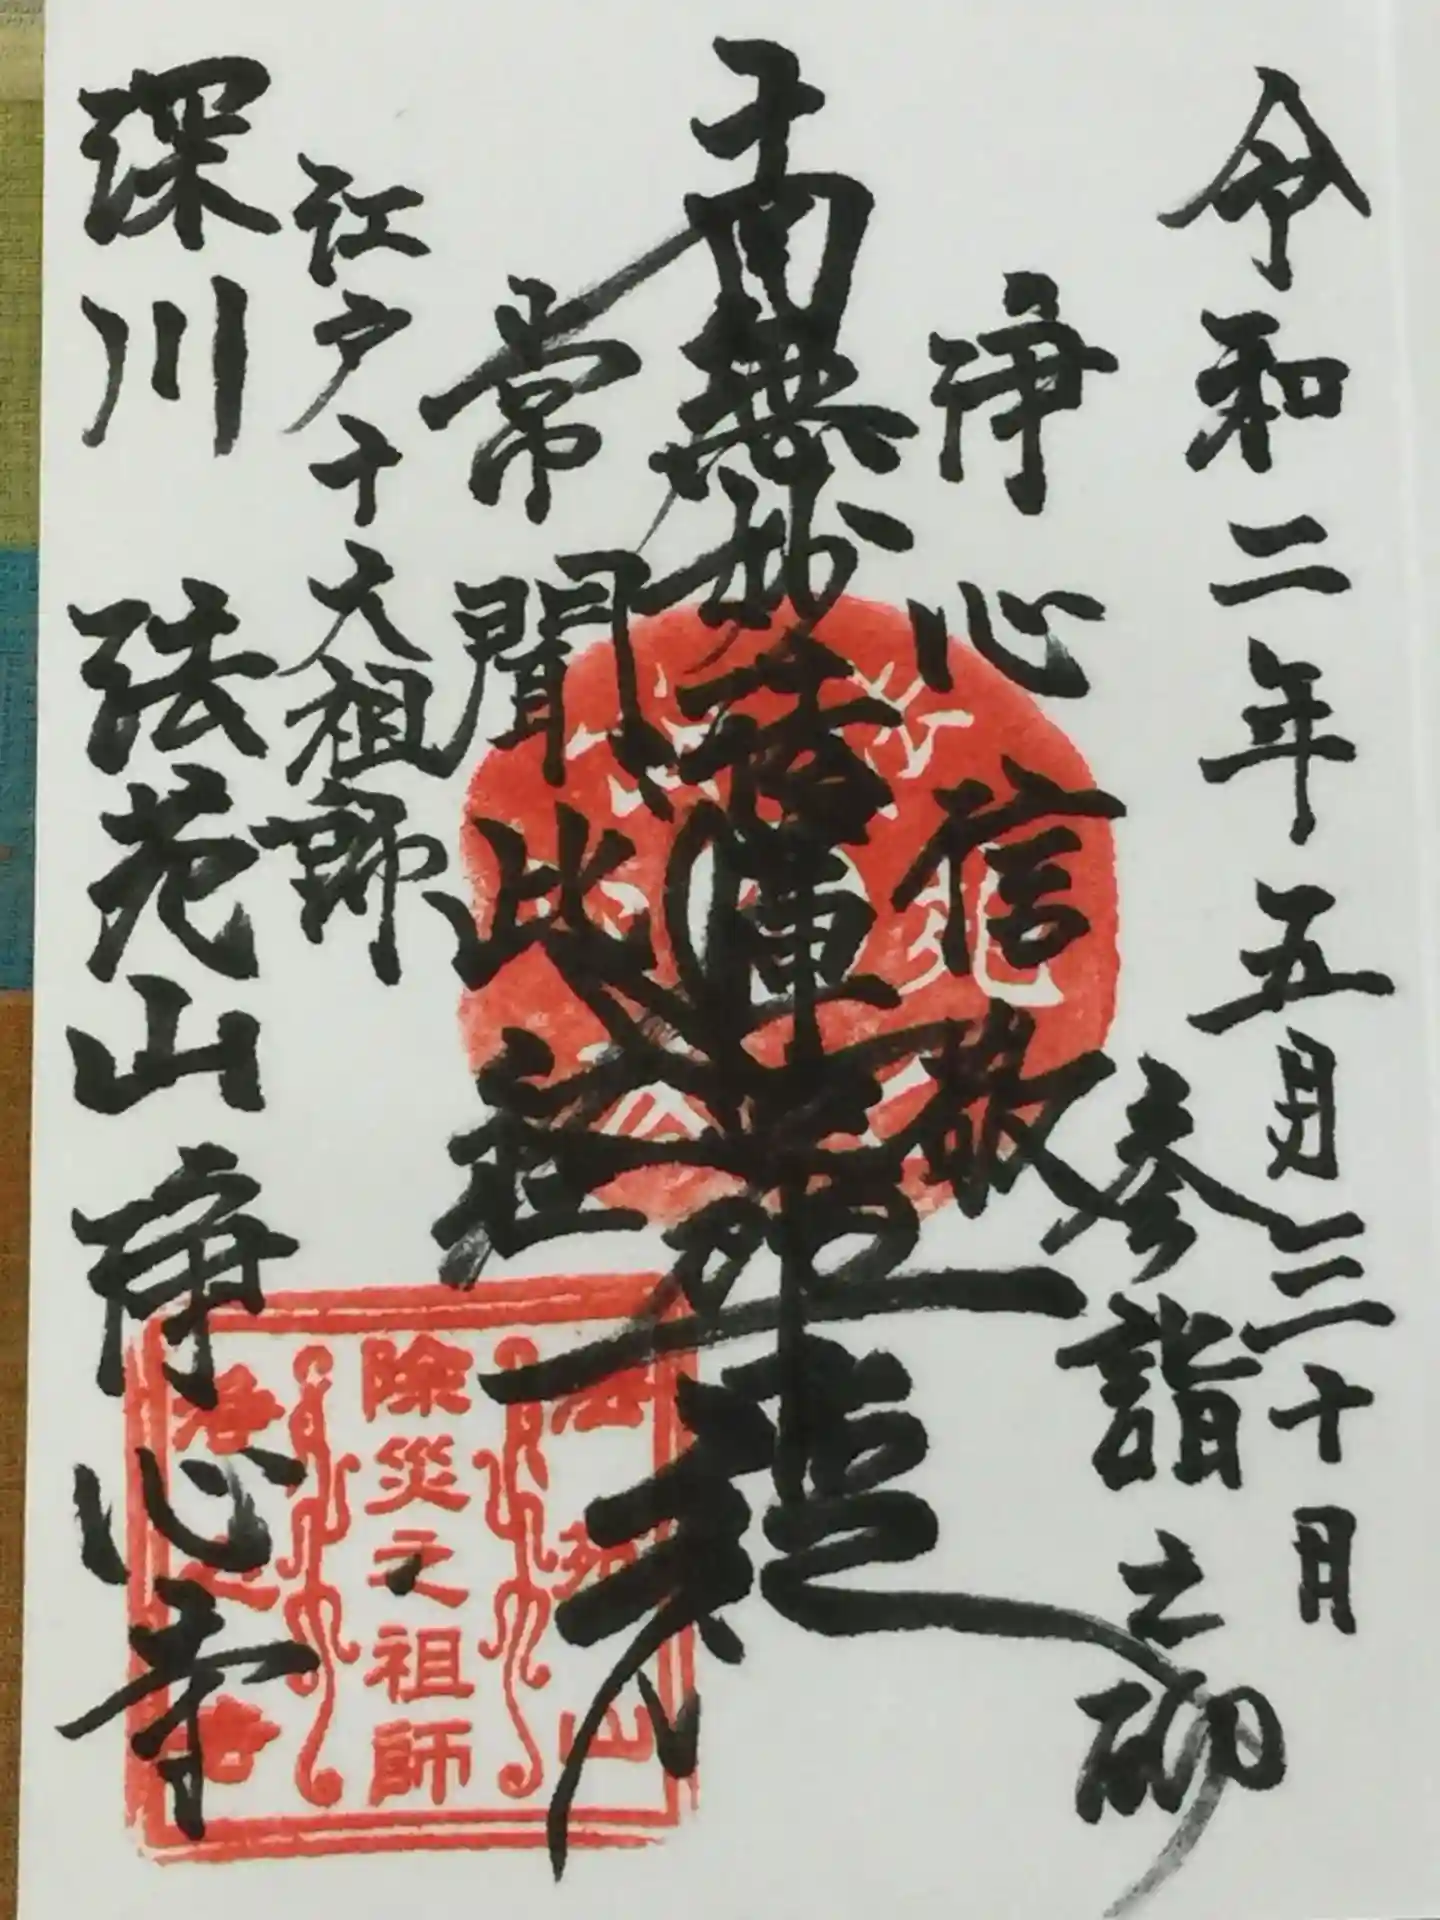 令和二年五月三十日
参詣之砌
浄心信敬
南無妙法蓮華経
常聞此経
江戸十大祖師
深川 法苑山 浄心寺
法苑山
除災之祖師
浄心寺